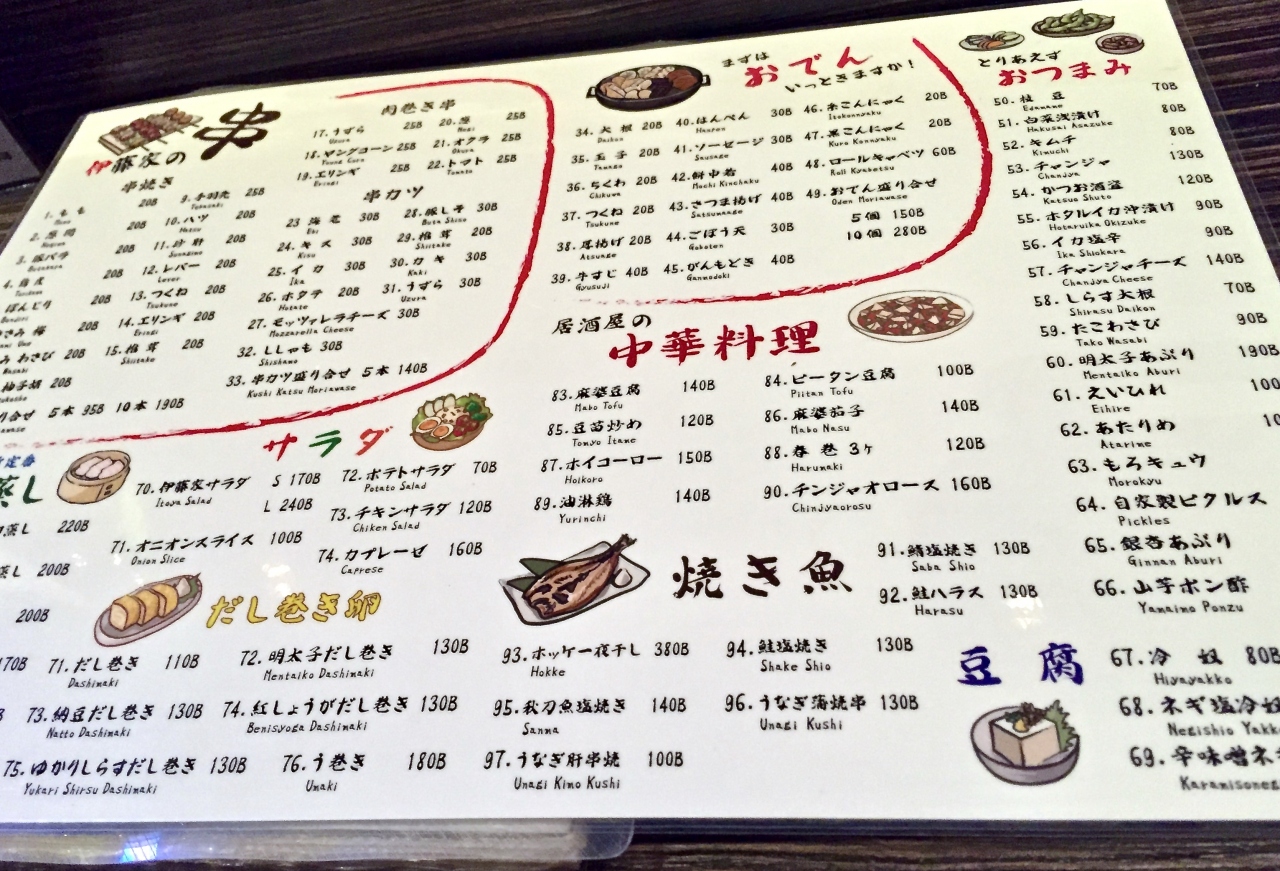 伊藤家の 串
串焼き
1.もも 20B
Momo
2.
3.豚バラ 20B
4. 20B
ぼんじり 20B
20B
わさび 20B
Wasabi
柚子胡 20B
り合せ 5本 95B 10本 190B
9.手羽先 25B
Tebasaki
10.ハツ 20B
Hatsu
11.砂肝 20B
Sunagimo
12.レバー 20B
Lever
13.つくね 20B
Tsukune
14.エリンギ 20B
Eringi
15.椎茸 20B
Shiitake
肉巻き串
17.うずら 25B
Uzura
18.ヤングコーン 25B
Young Corn
19.エリンギ 25B
Eringi
20.葱 25B
Negi
21.オクラ 25B
Okura
22.トマト 25B
Tomato
串カツ
23 海老 30B
Ebi
24.キス 30B
Kisu
25.イカ 30B
Ika
26.ホタテ 20B
Hotate
27.モッツァレラチーズ 30B
Mozzarella Cheese
28.豚しそ 30B
Buta Shiso
29.椎茸 20B
Shiitake
30.カキ 30B
Kaki
31.うずら 30B
Uzura
32.ししゃも 30B
Shishamo
33.串カツ盛り合せ 5本 140B
Kushi Katsu Moriawase
まずは
おでん
いっときますか!
34.大根 20B
Daikon
35.玉子 20B
Tamago
36.ちくわ 20B
Chikuwa
37.つくね 20B
Tsukune
38.厚揚げ 20B
Atsuage
39.牛すじ 40B
Gyusuji
40.はんぺん 30B
Hanpen
41.ソーセージ 30B
Sausage
42.餅巾着 40B
Mochi Kinchaku
43.さつま揚げ 40B
Satsumaage
44.ごぼう天 30B
Goboten
45.がんもどき 40B
Ganmodoki
46.糸こんにゃく 20B
Itokonnyaku
47.黒こんにゃく 20B
Kuro Konnyaku
48.ロールキャベツ 60B
Roll Kyabetsu
49.おでん盛り合せ
Oden Moriawase
5個 150B
10個 280B
とりあえず
おつまみ
50.枝豆 70B
Edamame
51.白菜浅漬け 80B
Hakusai Asazuke
52.キムチ 80B
Kimuchi
53.チャンジャ 130B
Chanjya
54.かつお酒盗 120B
Katsuo Shuto
55.ホタルイカ沖漬け 90B
Hotaruika Okizuke
56.イカ塩辛 90B
Ika Shiokara
57.チャンジャチーズ 140B
Chanjya Cheese
58.しらす大根 70B
Shirasu Daikon
59.たこわさび 90B
Tako Wasabi
60.明太子あぶり 190B
Mentaiko Aburi
61.えいひれ 100
Eihire
62.あたりめ 10
Atarime
63.もろキュウ
Morokyu
64.自家製ピクルス
Pickles
65.銀杏あぶり
Ginnan Aburi
66.山芋ポン酢
Yamaimo Ponzu
居酒屋の
中華料理
83.麻婆豆腐 140B
Mabo Tofu
84.ピータン豆腐 100B
Piitan Tofu
85.豆苗炒め 120B
Tomyo Itame
86.麻婆茄子 140B
Mabo Nasu
87.ホイコーロー 150B
Hoikoro
88.春巻 3ヶ 120B
Harumaki
89.油淋鶏 140B
Yurinchi
90.チンジャオロース 160B
Chinjyaorosu
蒸し
蒸し 220B
蒸し 200B
200B
170B
サラダ
70.伊藤家サラダ S 170B
Itoya Salad L 240B
71.オニオンスライス 100B
Onion Slice
72.ポテトサラダ 70B
Potato Salad
73.チキンサラダ 120B
Chiken Salad
74.カプレーゼ 160B
Caprese
だし巻き卵
71.だし巻き 110B
Dashimaki
72.明太子だし巻き 130B
Mentaiko Dashimaki
73.納豆だし巻き 130B
Natto Dashimaki
74.紅しょうがだし巻き 130B
Benisyoga Dashimaki
75.ゆかりしらすだし巻き 130B
Yukari Shirsu Dashimaki
76.う巻き 180B
Umaki
焼き魚
91.鯖塩焼き 130B
Saba Shio
92.鮭ハラス 130B
Harasu
93.ホッケ一夜干し 380B
Hokke
94.鮭塩焼き 130B
Shake Shio
95.秋刀魚塩焼き 140B
Sanma
96.うなぎ蒲焼串 130B
Unagi Kushi
97.うなぎ肝串焼 100B
Unagi Kimo Kushi
豆腐
67.冷奴 80B
Hiyayakko
68.ネギ塩冷奴
Negishio Yakk
69.辛味噌ネ
Karamisoneg